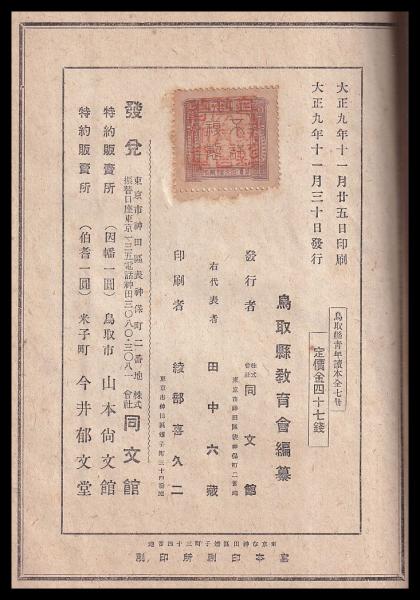 大正九年十一月廿五日印刷
大正九年十一月三十日發行
鳥取縣靑年讀本全七卷
定價金四十七錢
鳥取縣敎育會編纂
發行者 株式會社 同文館
東京市神田區表神保町二番地
右代表者 田中六藏
印刷者 綾部喜久二
東京市神田區錦町三丁目四番地
發兌 東京市神田區表神保町二番地 株式會社 同文館
振替口座東京一三五電話神田三〇八〇・三〇八一
特約販賣所 (因幡一圓) 鳥取市 山本尙文館
特約販賣所 (伯耆一圓) 米子町 今井郁文堂